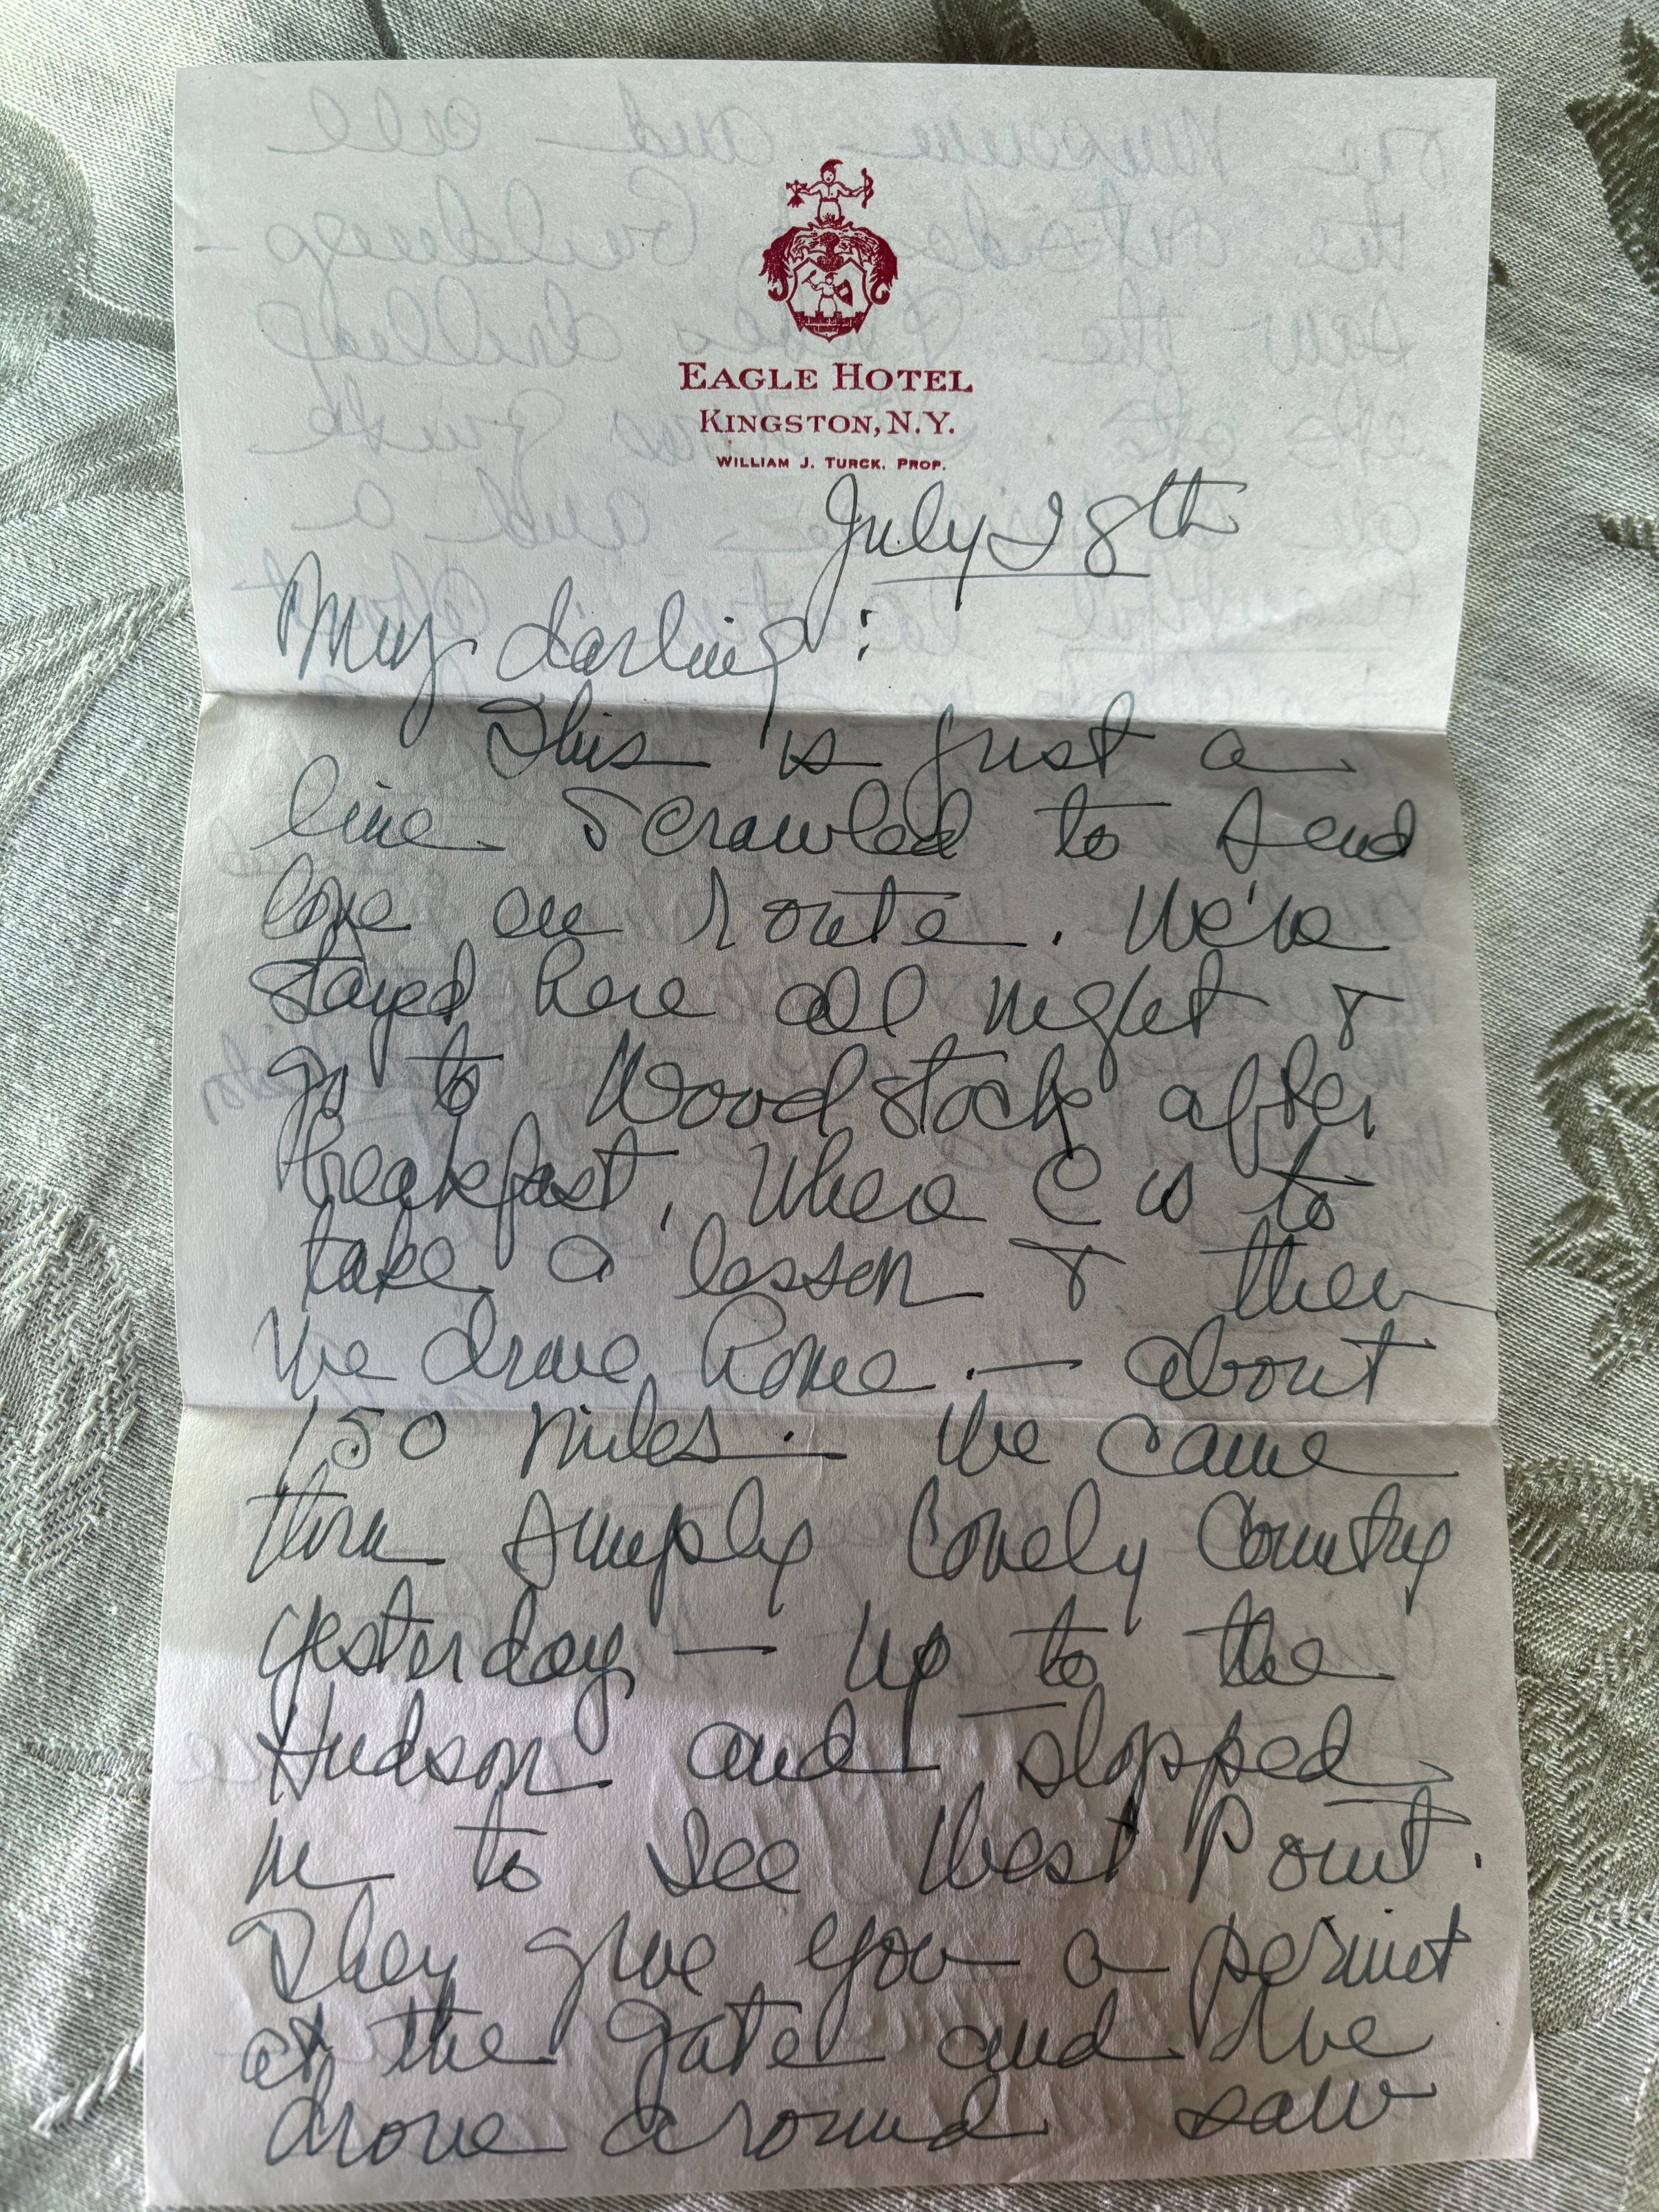 EAGLE HOTEL
KINGSTON, N.Y.
WILLIAM J. TURCK, PROP.
July 28th
My darling:
This is just a
line scrawled to send
love en route. We've
stayed here all night &
go to Woodstock after
breakfast, where C is to
take a lesson & then
we drive home. — about
150 miles. — We came
thru simply lovely country
yesterday — up to the
Hudson and stopped
in to see West Point.
They give you a permit
at the gate and we
drove around saw